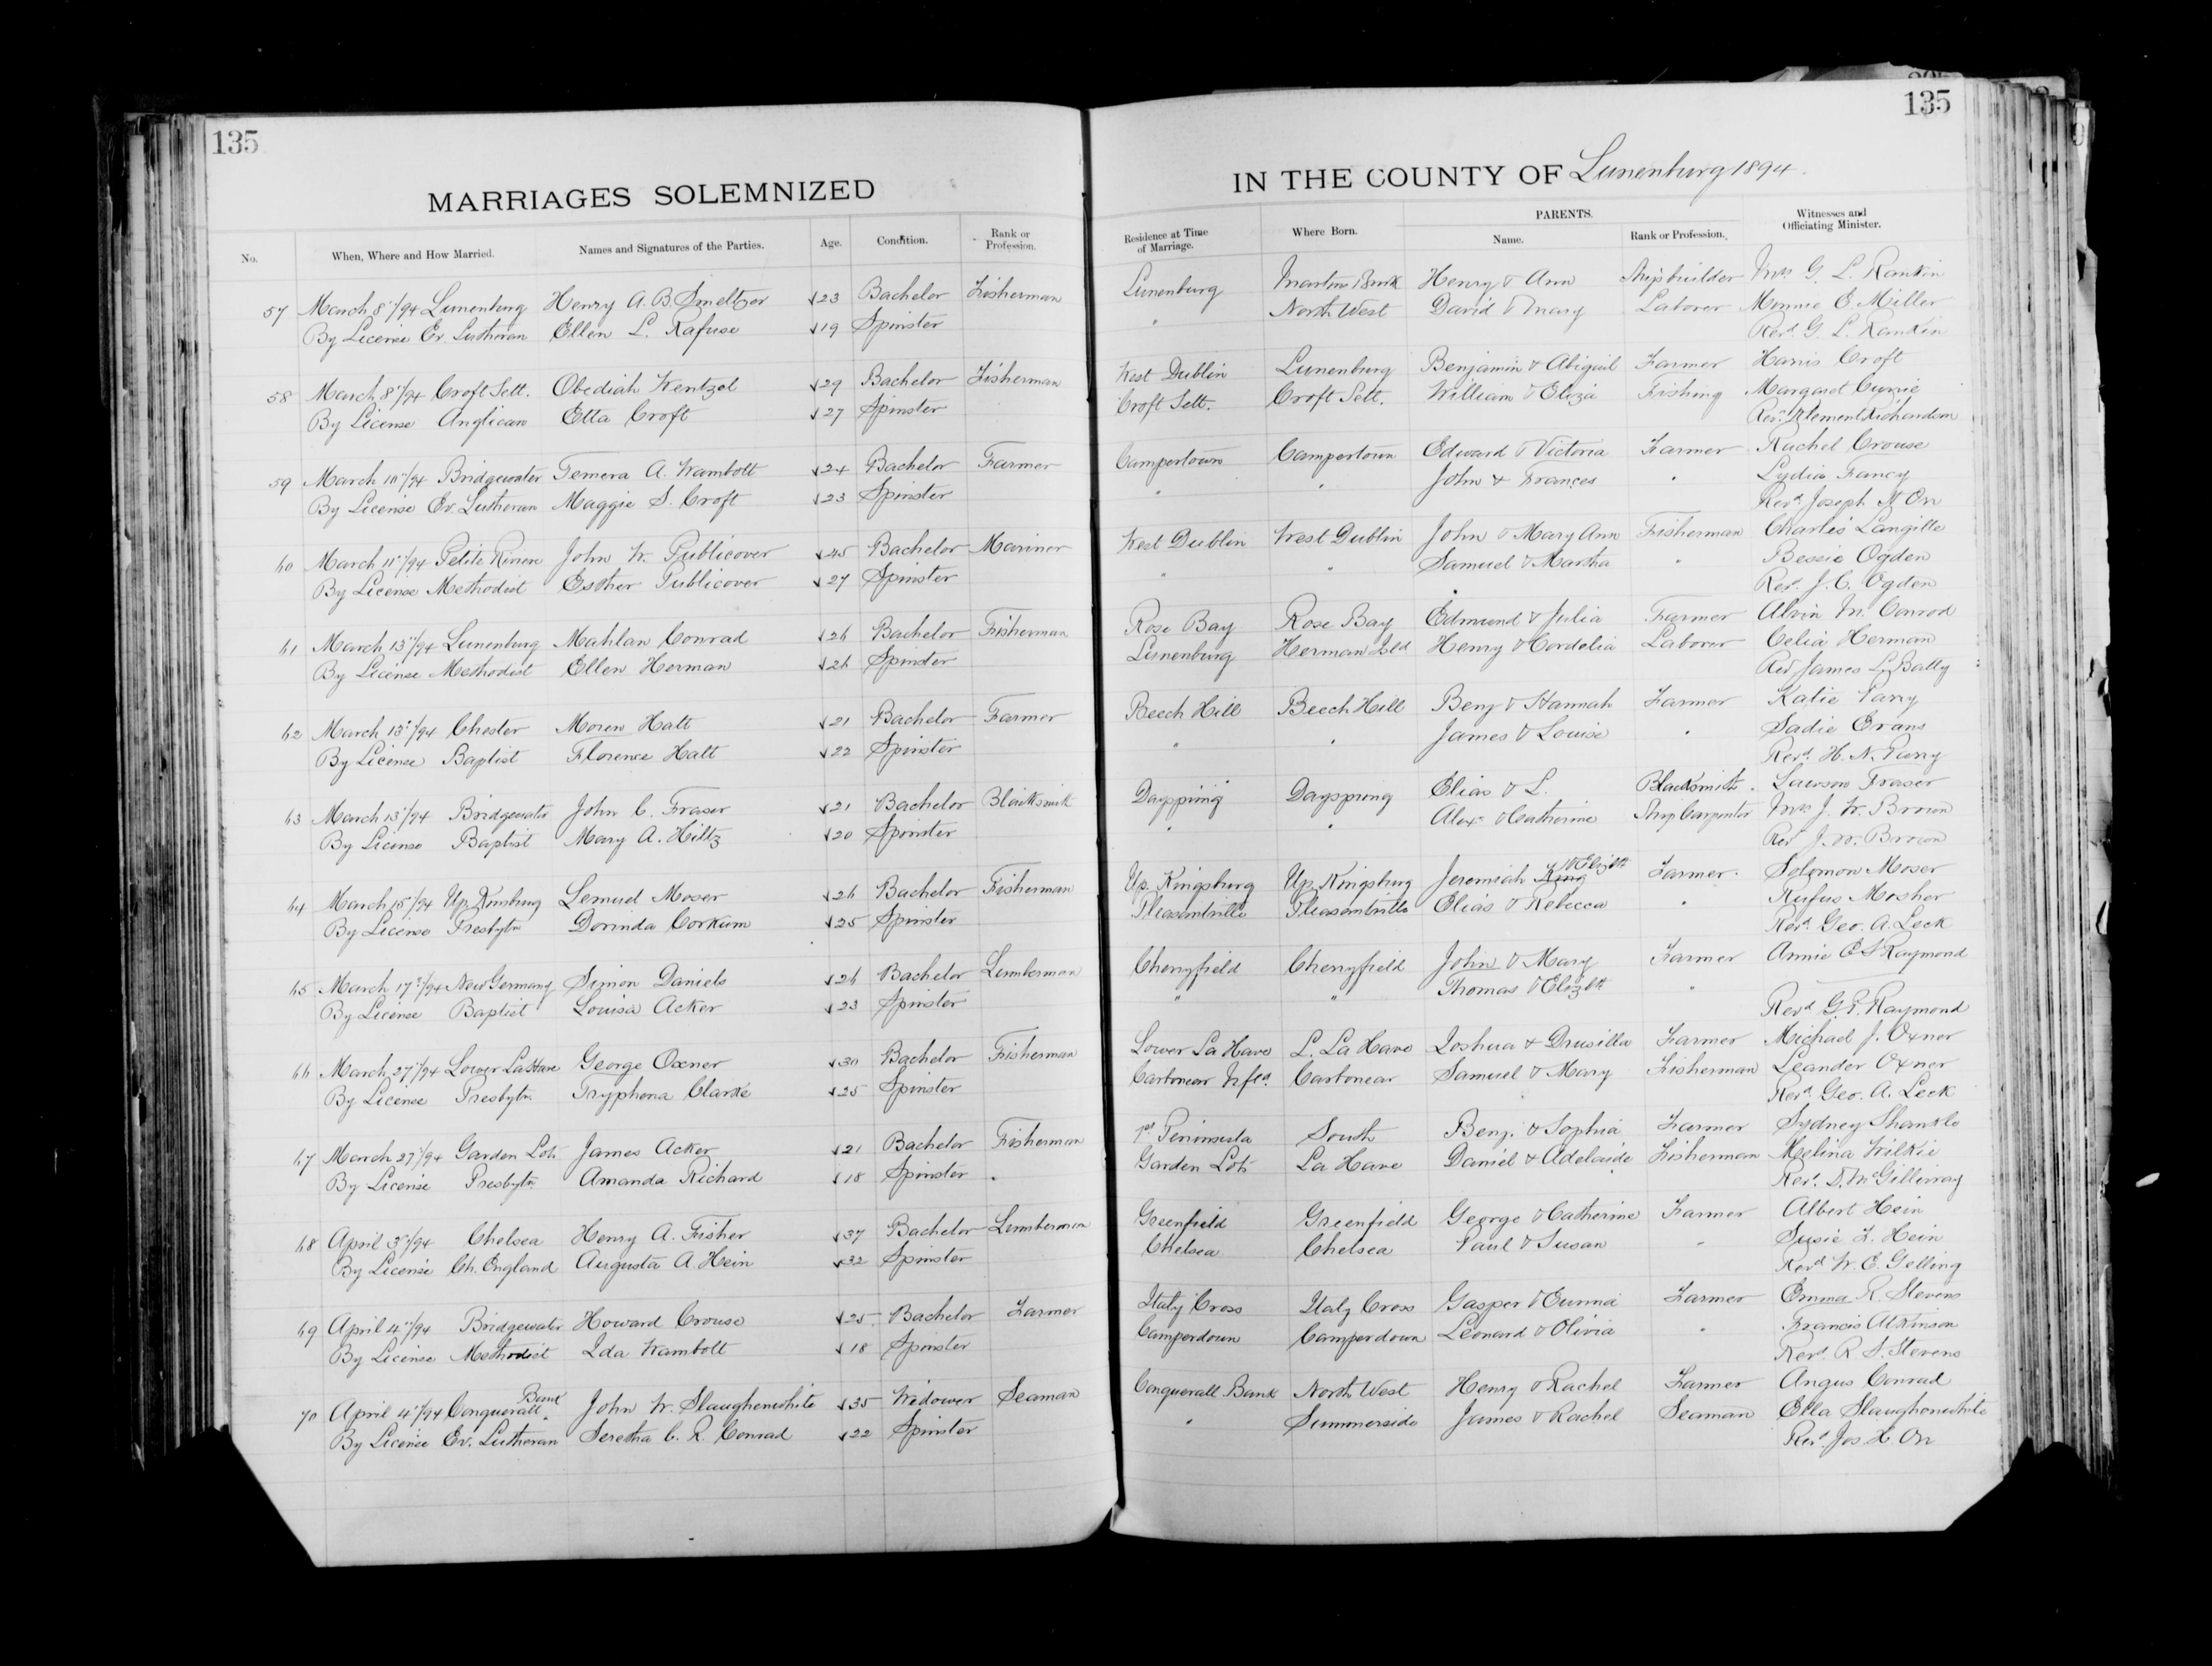 135
MARRIAGES SOLEMNIZED
No. When, Where and How Married. Names and Signatures of the Parties. Age. Condition. Rank or Profession.
57 March 8"/94 Lunenburg Henry A. B Smeltzer 23 Bachelor Fisherman
By License Ev. Lutheran Ellen L. Rafuse 19 Spinster
58 March 8"/94 Croft Sett. Obediah Wentzel 29 Bachelor Fisherman
By License Anglican Etta Croft 27 Spinster
59 March 10"/94 Bridgewater Temera A. Wambolt 24 Bachelor Farmer
By License Ev. Lutheran Maggie S. Croft 23 Spinster
60 March 11"/94 Petite Riviere John W. Publicover 45 Bachelor Mariner
By License Methodist Esther Publicover 27 Spinster
61 March 13"/94 Lunenburg Mahlan Conrad 26 Bachelor Fisherman
By License Methodist Ellen Herman 26 Spinster
62 March 13"/94 Chester Moren Hatt 21 Bachelor Farmer
By License Baptist Florence Hatt 22 Spinster
63 March 13"/94 Bridgewater John C. Fraser 21 Bachelor Blacksmith
By License Baptist Mary A. Hiltz 20 Spinster
64 March 15"/94 Up. Kinsburg Lemuel Moser 26 Bachelor Fisherman
By License Presbytn Dorinda Corkum 25 Spinster
65 March 17"/94 New Germany Simon Daniels 26 Bachelor Lumberman
By License Baptist Louisa Acker 23 Spinster
66 March 27"/94 Lower LaHave George Oxner 30 Bachelor Fisherman
By License Presbytn. Tryphena Clarke 25 Spinster
67 March 27"/94 Garden Lots James Acker 21 Bachelor Fisherman
By License Presbytn. Amanda Richard 18 Spinster
68 April 3"/94 Chelsea Henry A. Fisher 37 Bachelor Lumberman
By License Ch. England Augusta A. Hein 32 Spinster
69 April 4"/94 Bridgewater Howard Crouse 25 Bachelor Farmer
By License Methodist Ida Wambolt 18 Spinster
70 April 4"/94 Conquerall Bank John W. Slaughenwhite 35 Widower Seaman
By License Ev. Lutheran Seretha C. R. Conrad 22 Spinster
135
IN THE COUNTY OF Lunenburg 1894.
Residence at Time of Marriage. Where Born. PARENTS. Name. Rank or Profession. Witnesses and Officiating Minister.
Lunenburg Henry & Ann Shipbuilder Mrs G. L. Rankin
" North West David & Mary Laborer Minnie E Miller
Revd G. L. Rankin
West Dublin Lunenburg Benjamin & Abigail Farmer Harris Croft
Croft Sett. Croft Sett. William & Eliza Fishing Margaret Currie
Revd Richardson
Campertown Campertown Edward & Victoria Farmer Rachel Crouse
" " John & Frances " Lydia Fancy
Revd Joseph H Orr
West Dublin West Dublin John & Mary Ann Fisherman Charles Langille
" " Samuel & Martha " Bessie Ogden
Revd J. C. Ogden
Rose Bay Rose Bay Edmund & Julia Farmer Alvin M. Conrod
Lunenburg Herman Isld Henry & Cordelia Laborer Celia Herman
Revd James L. Batty
Beech Hill Beech Hill Benj & Hannah Farmer Katie Parry
" " James & Louise " Sadie Evans
Revd. H. N. Parry
Dayspring Dayspring Elias & L. Blacksmith. Lawson Fraser
" " Alexr & Catherine Ship Carpenter Mrs J. W. Brown
Revd J. W. Brown
Up. Kingsburg Up. Kingsburg Jeremiah & Elizbth Farmer. Solomon Moser
Pleasantville Pleasantville Elias & Rebecca " Rufus Mosher
Revd. Geo. A. Leck
Cherryfield Cherryfield John & Mary Farmer Annie E S Raymond
" " Thomas & Elizbth "
Revd G. P. Raymond
Lower La Have L. La Have Joshua & Drusilla Farmer Michael J. Oxner
Carbonear Nfld. Carbonear Samuel & Mary Fisherman Leander Oxner
Revd. Geo. A. Leck
1st Peninsula South Benj. & Sophia Farmer Sydney Shankle
Garden Lots La Have Daniel & Adelaide Fisherman Melina Wilkie
Revd. D. McGillivray
Greenfield Greenfield George & Catherine Farmer Albert Hein
Chelsea Chelsea Paul & Susan " Susie F. Hein
Revd W. E. Gelling
Italy Cross Italy Cross Gasper & Eunna Farmer Emma R. Stevens
Camperdown Camperdown Leonard & Olivia " Francis Atkinson
Revd. R. S. Stevens
Conquerall Bank North West Henry & Rachel Farmer Angus Conrad
" Summerside James & Rachel Seaman Ella Slaughenwhite
Revd. Jos H. Orr